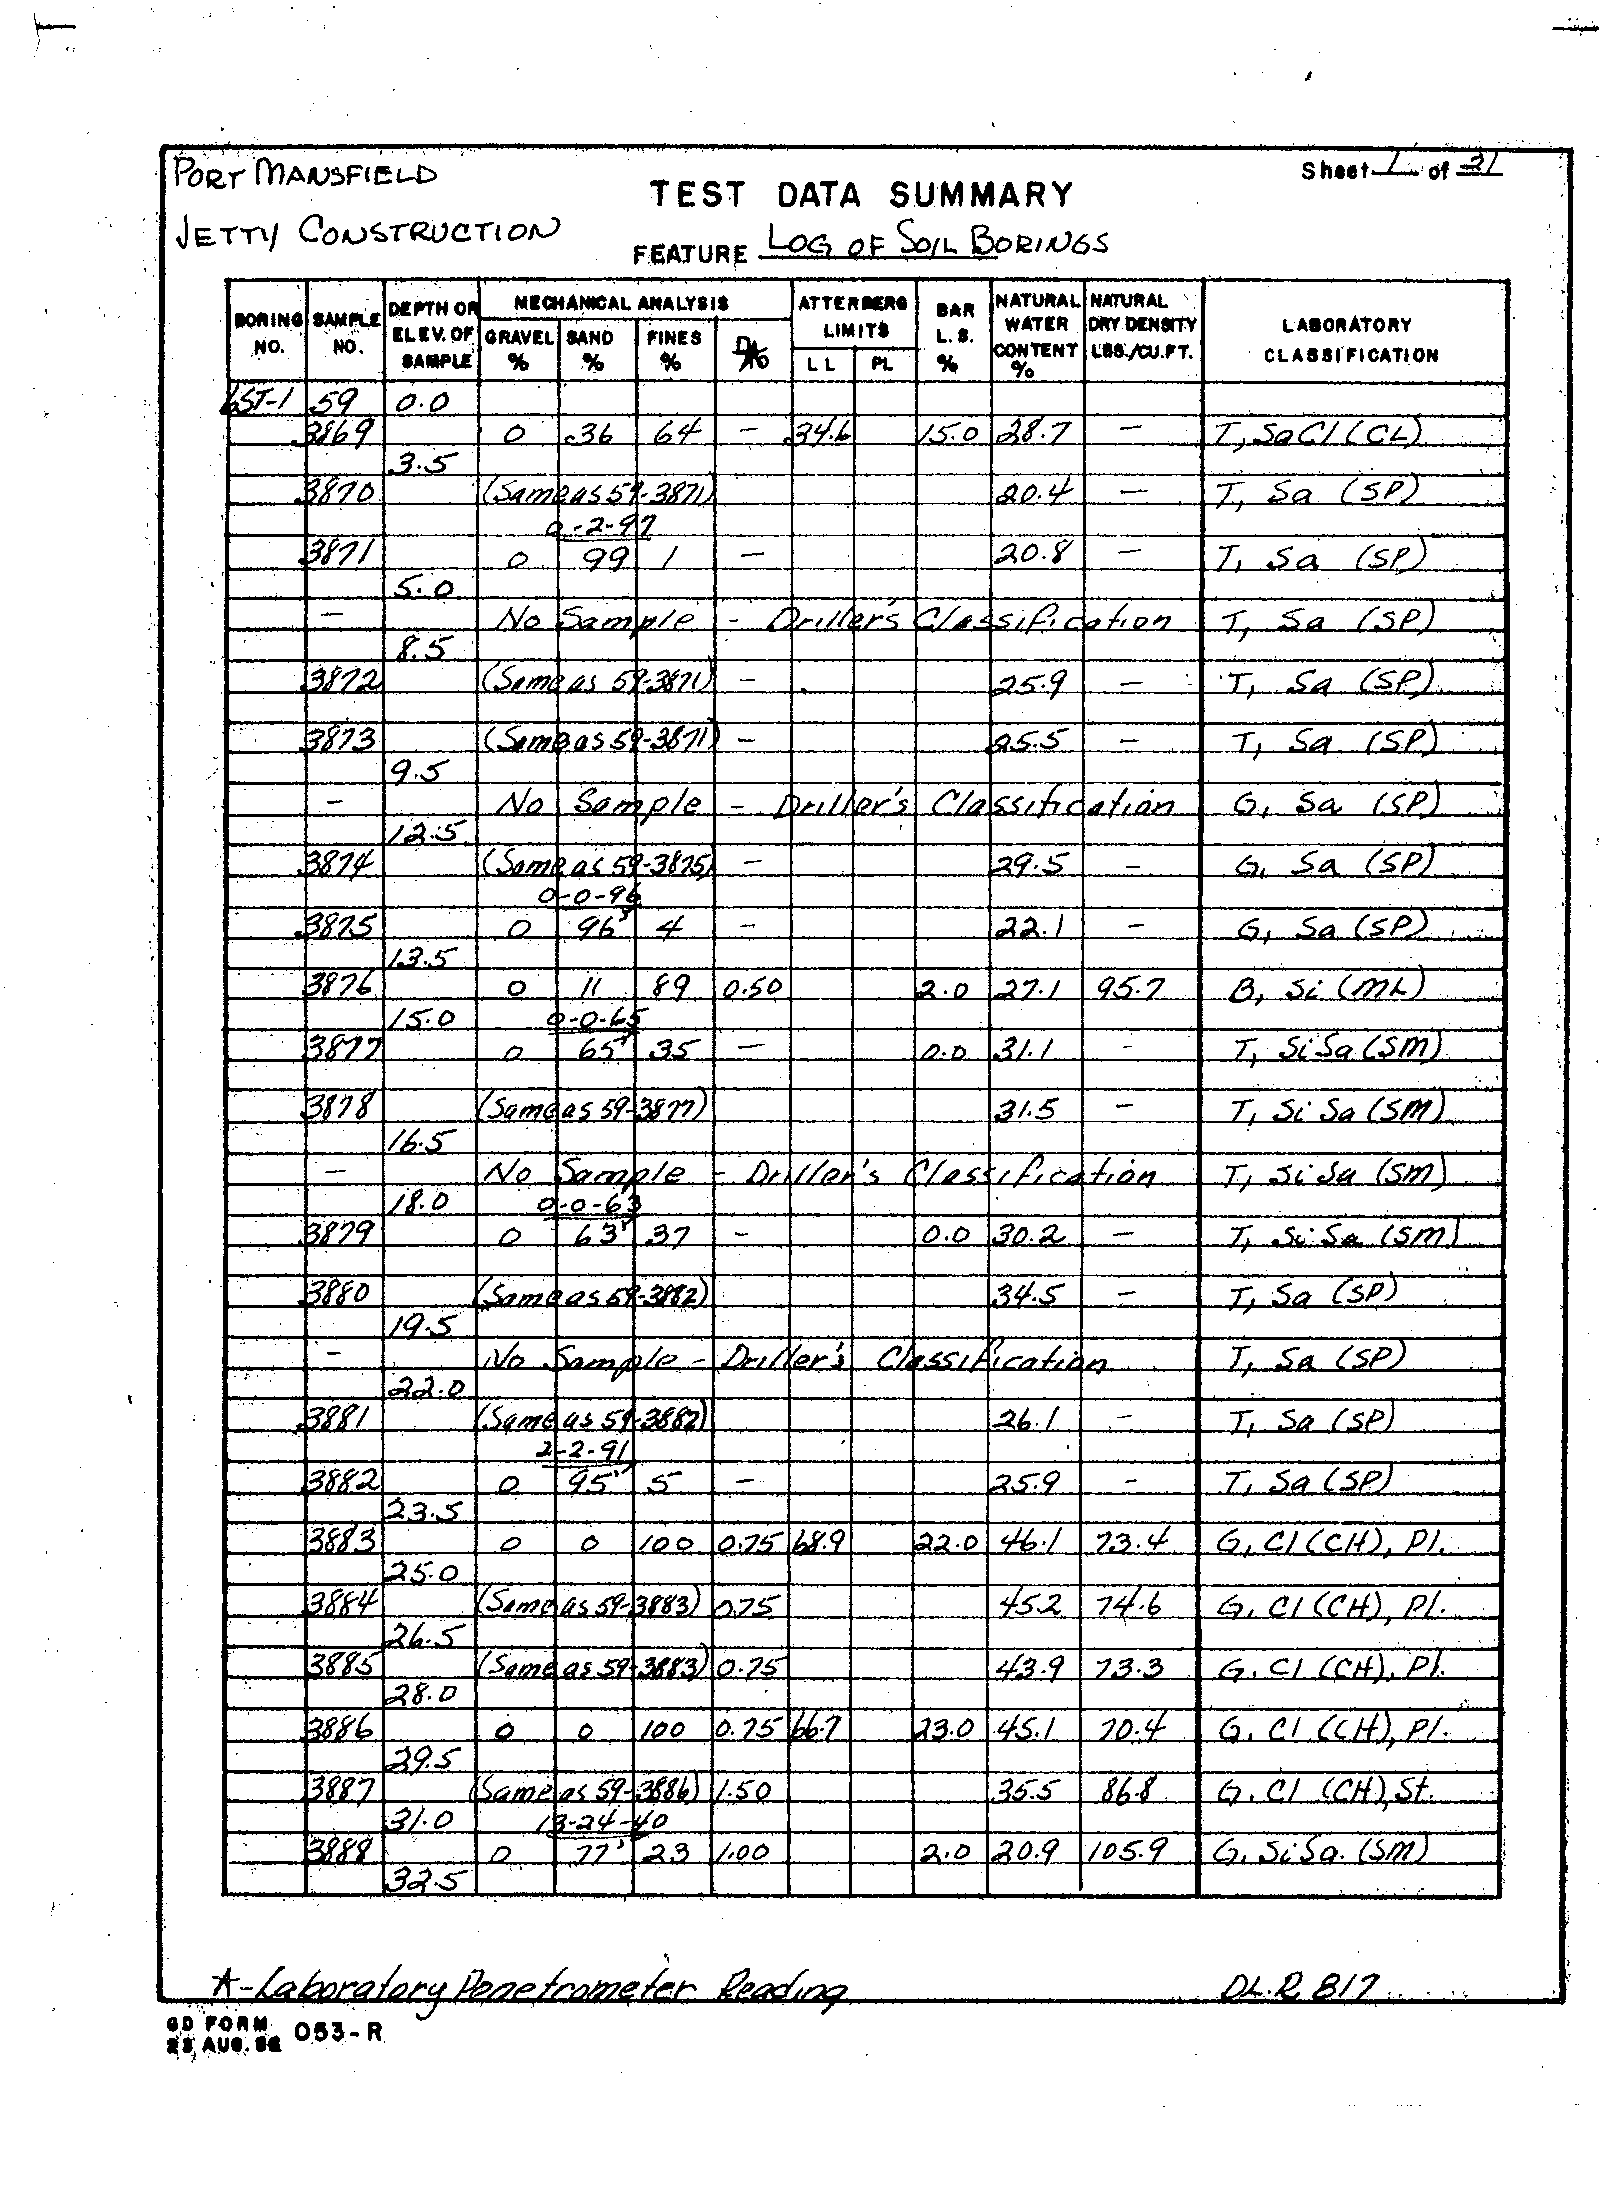 PORT MANSFIELD
Sheet 1 of 21
TEST DATA SUMMARY
JETTY CONSTRUCTION
FEATURE LOG OF SOIL BORINGS
BORING NO. SAMPLE NO. DEPTH OR ELEV. OF SAMPLE MECHANICAL ANALYSIS GRAVEL % SAND % FINES % ATTERBERG LIMITS LL PL BAR L.S. % NATURAL WATER CONTENT % NATURAL DRY DENSITY LBS./CU.FT. LABORATORY CLASSIFICATION
6ST-1 59 0.0
3869 0 36 64 - 34.6 15.0 28.7 - T, SaCl (CL)
3.5
3870 (Same as 59-3871) 20.4 - T, Sa (SP)
0-2-97
3871 0 99 1 - 20.8 - T, Sa (SP)
5.0
- No Sample - Driller's Classification T, Sa (SP)
8.5
3872 (Same as 59-3871) - 25.9 - T, Sa (SP)
3873 (Same as 59-3871) - 25.5 - T, Sa (SP)
9.5
- No Sample - Driller's Classification G, Sa (SP)
12.5
3874 (Same as 59-3875) - 29.5 - G, Sa (SP)
0-0-96
3875 0 96 4 - 22.1 - G, Sa (SP)
13.5
3876 0 11 89 0.50 2.0 27.1 95.7 B, Si (ML)
15.0 0-0-65
3877 0 65 35 - 0.0 31.1 - T, SiSa (SM)
3878 (Same as 59-3877) 31.5 - T, SiSa (SM)
16.5
- No Sample - Driller's Classification T, SiSa (SM)
18.0 0-0-63
3879 0 63 37 - 0.0 30.2 - T, SiSa (SM)
3880 (Same as 59-3882) 34.5 - T, Sa (SP)
19.5
- No Sample - Driller's Classification T, Sa (SP)
22.0
3881 (Same as 59-3882) 26.1 - T, Sa (SP)
2-2-91
3882 0 95 5 - 25.9 - T, Sa (SP)
23.5
3883 0 0 100 0.75 68.9 22.0 46.1 73.4 G, Cl (CH), Pl.
25.0
3884 (Same as 59-3883) 0.75 45.2 74.6 G, Cl (CH), Pl.
26.5
3885 (Same as 59-3883) 0.75 43.9 73.3 G, Cl (CH), Pl.
28.0
3886 0 0 100 0.75 66.7 23.0 45.1 70.4 G, Cl (CH), Pl.
29.5
3887 (Same as 59-3886) 1.50 35.5 86.8 G, Cl (CH), St.
31.0 13-24-40
3888 0 77 23 1.00 2.0 20.9 105.9 G, SiSa. (SM)
32.5
*-Laboratory Penetrometer Reading
DLR 817
GD FORM
053-R